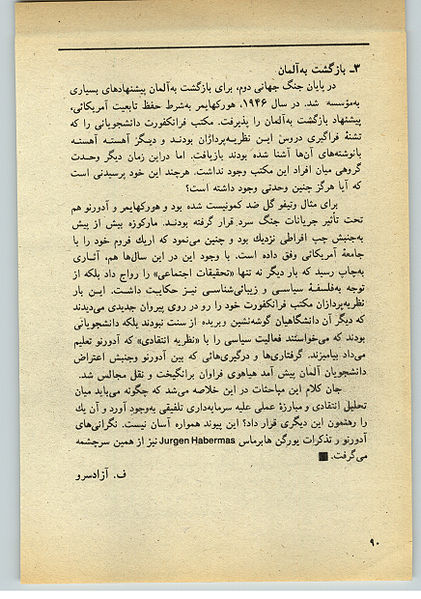 ۳ـ بازگشت به‌آلمان
در پایان جنگ جهانی دوم، برای بازگشت به‌آلمان پیشنهادهای بسیاری
به‌مؤسسه شد. در سال ۱۹۴۶، هورکهایمر به‌شرط حفظ تابعیت آمریکائی،
پیشنهاد بازگشت به‌آلمان را پذیرفت. مکتب فرانکفورت دانشجویانی را که
تشنهٔ فراگیری دروس این نظریه‌پردازان بودند و دیگر آهسته آهسته
بانوشته‌های آن‌ها آشنا شده بودند بازیافت. اما دراین زمان دیگر وحدت
گروهی میان افراد این مکتب وجود نداشت. هرچند این خود پرسیدنی است
که آیا هرگز چنین وحدتی وجود داشته است؟
برای مثال ویتفو گل ضد کمونیست شده بود و هورکهایمر و آدورنو هم
تحت تأثیر جریانات جنگ سرد قرار گرفته بودند. مارکوزه بیش از پیش
به‌جنبش چپ افراطی نزدیك بود و چنین می‌نمود که اریك فروم خود را با
جامعهٔ آمریکائی وفق داده است. با وجود این در این سال‌ها هم، آثاری
به‌چاپ رسید که بار دیگر نه تنها «تحقیقات اجتماعی» را رواج داد بلکه از
توجه به‌فلسفهٔ سیاسی و زیبائی‌شناسی نیز حکایت داشت. این بار
نظریه‌پردازان مکتب فرانکفورت خود را رو در روی پیروان جدیدی می‌دیدند
که دیگر آن دانشگاهیان گوشه‌نشین وبریده از سنت نبودند بلکه دانشجویانی
بودند که می‌خواستند فعالیت سیاسی را با «نظریه انتقادی» که آدورنو تعلیم
می‌داد بیامیزند. گرفتاری‌ها و درگیری‌هائی که بین آدورنو وجنبش اعتراض
دانشجویان آلمان پیش آمد هیاهوی فراوان برانگیخت و نقل مجالس شد.
جان کلام این مباحثات در این خلاصه می‌شد که چگونه می‌باید میان
تحلیل انتقادی و مبارزهٔ عملی علیه سرمایه‌داری تلفیقی به‌وجود آورد و آن یك
را رهنمون این دیگری قرار داد؟ این پیوند همواره آسان نیست. نگرانی‌های
آدورنو و تذکرات یورگن هابرماس Jurgen Habermas نیز از همین سرچشمه
می‌گرفت.
ف. آزادسرو
۹۰